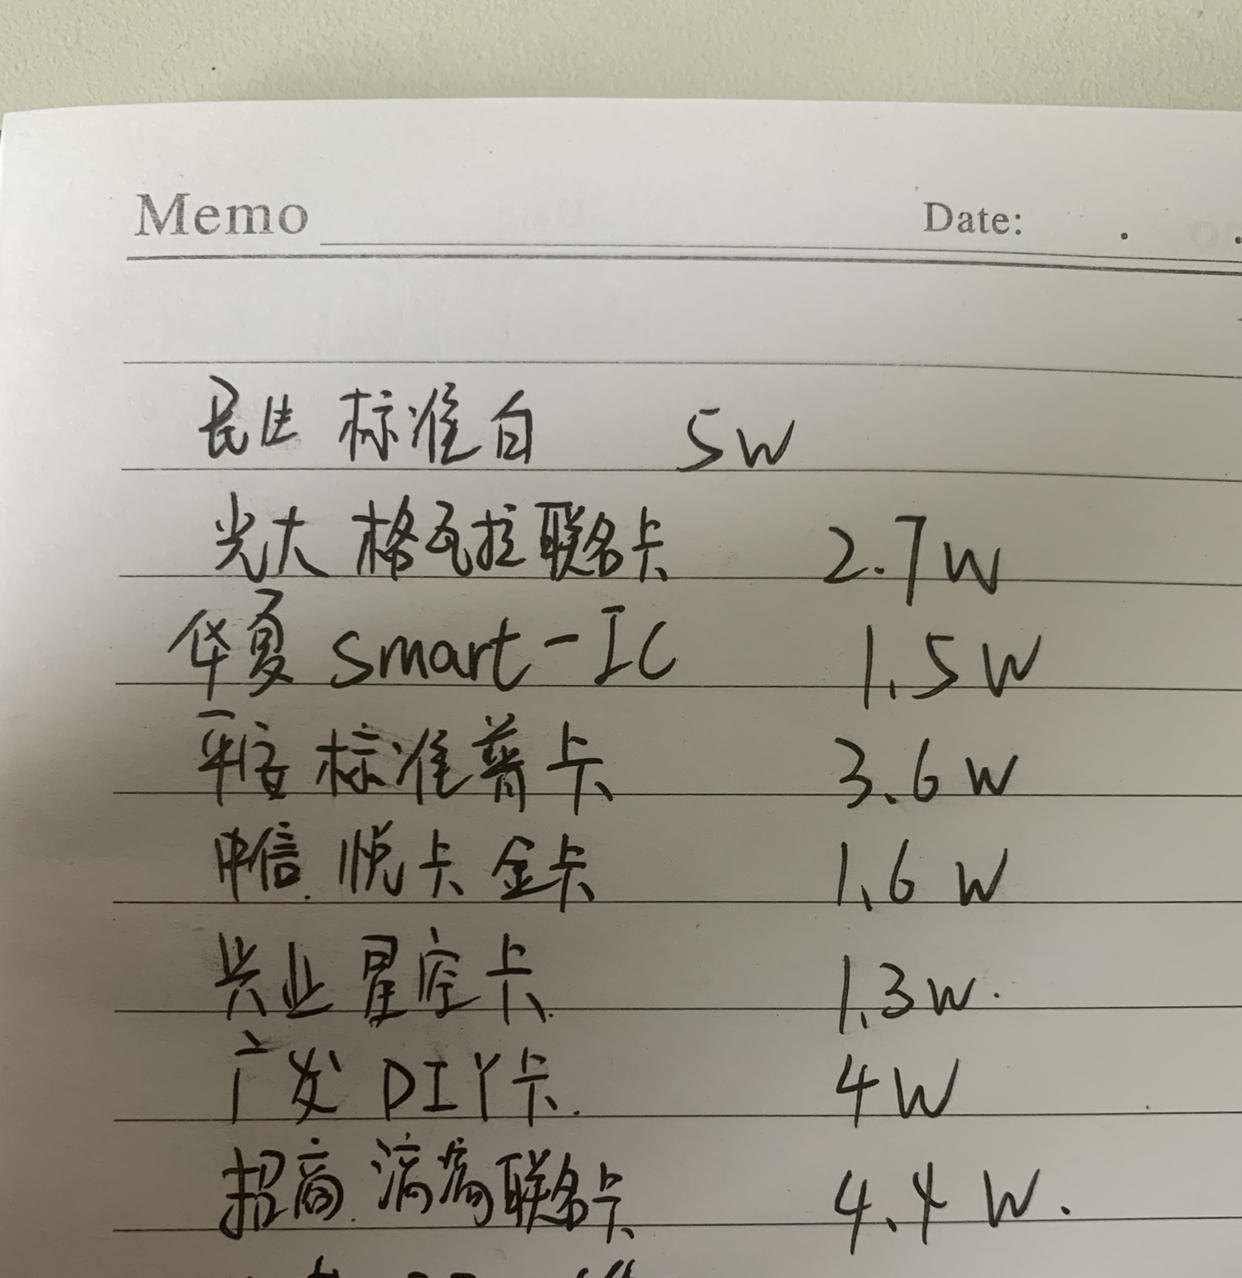 Memo Date: . .
民生 标准白 5W
光大 格瓦拉联名卡 2.7W
华夏 smart-IC 1.5W
平安 标准普卡 3.6W
中信. 悦卡 金卡 1.6W
兴业 星座卡. 1.3W.
广发 DIY卡. 4W
招商. 滴滴联名卡 4.4W.